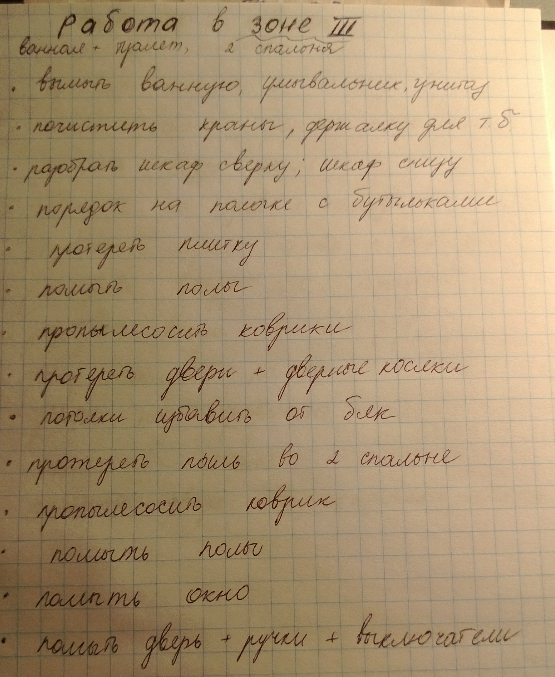 Работа в зоне III
ванная + туалет, 2 спальня
• вымыть ванную, умывальник, унитаз
• почистить краны, держалку для т.б
• разобрать шкаф сверху; шкаф снизу
• порядок на полочке с бутыльками
• протереть плитку
• помыть полы
• пропылесосить коврики
• протереть двери + дверные косяки
• потолки избавить от бяк
• протереть пыль во 2 спальне
• пропылесосить коврик
• помыть полы
• помыть окно
• помыть дверь + ручки + выключатели